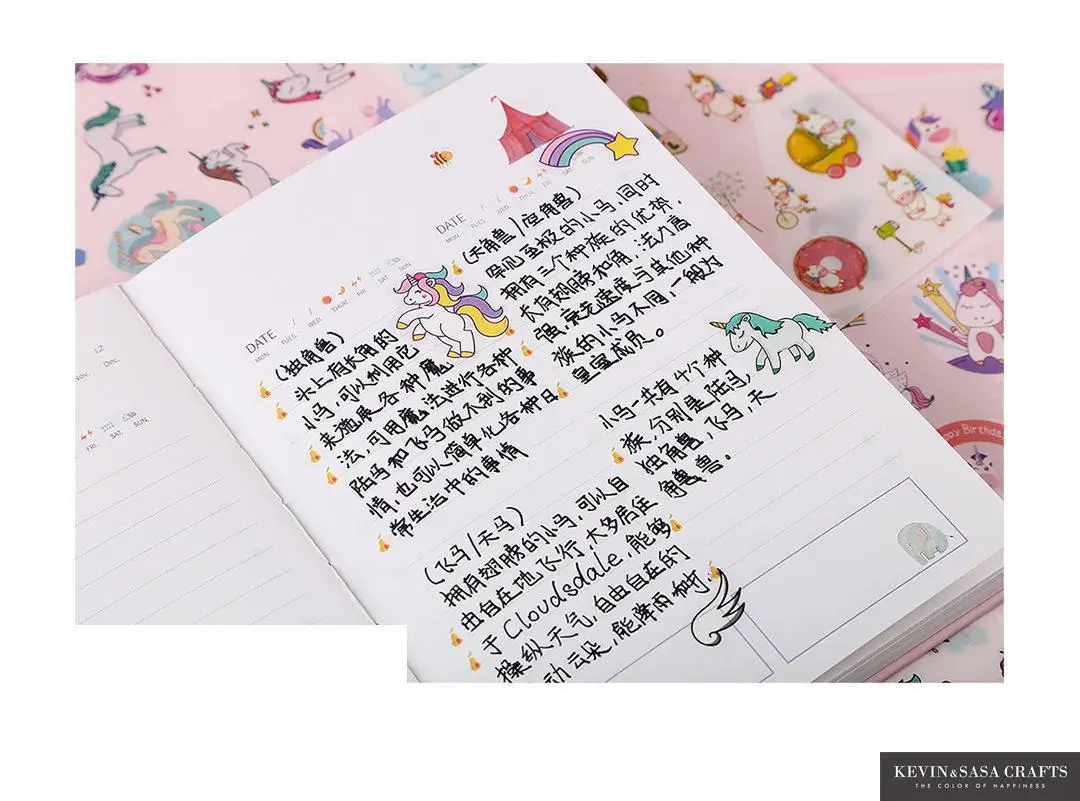 DATE / /
MON TUES WED THUR FRI SAT SUN
(独角兽)
头上有长角的
小马,可以利用它
来施展各种魔
法,可用魔法进行各种
陆马和飞马做不到的事
情,也可以简单化各种日
常生活中的事情
(飞马/天马)
拥有翅膀的小马,可以自
由自在地飞行,大多居住
于Cloudsdale,能够
操纵天气,自由自在的
动云朵,能降雨
DATE / /
MON TUES WED THUR FRI SAT SUN
(天角兽/空角兽)
罕见至极的小马,同时
拥有三个种族的优势,
大有翅膀和角,法力高
强,竞走速度与其他种
族的小马不同,一般为
皇室成员。
小马一共有4个种
族,分别是陆马,
独角兽,飞马,天
角兽兽。
12
Nov. Dec.
FRI. SAT. SUN.
Happy Birthda
KEVIN&SASA CRAFTS
THE COLOR OF HAPPINESS